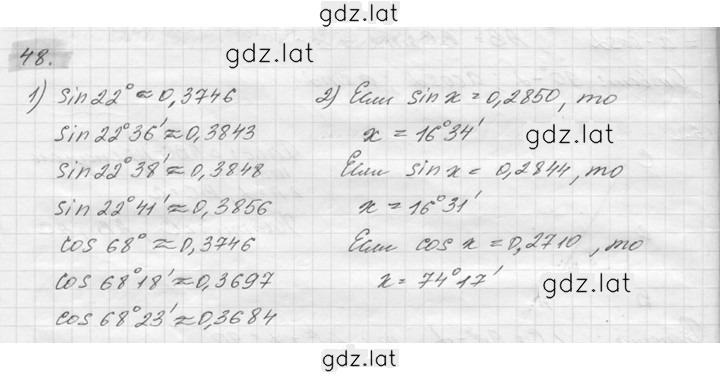 gdz.lat
48.
gdz.lat
1) sin 22° ≈ 0,3746
sin 22°36′ ≈ 0,3843
sin 22°38′ ≈ 0,3848
sin 22°41′ ≈ 0,3856
cos 68° ≈ 0,3746
cos 68°18′ ≈ 0,3697
cos 68°23′ ≈ 0,3684
2) Если sin x = 0,2850, то
x = 16°34′
gdz.lat
Если sin x = 0,2844, то
x = 16°31′
Если cos x = 0,2710, то
x = 74°17′
gdz.lat
gdz.lat